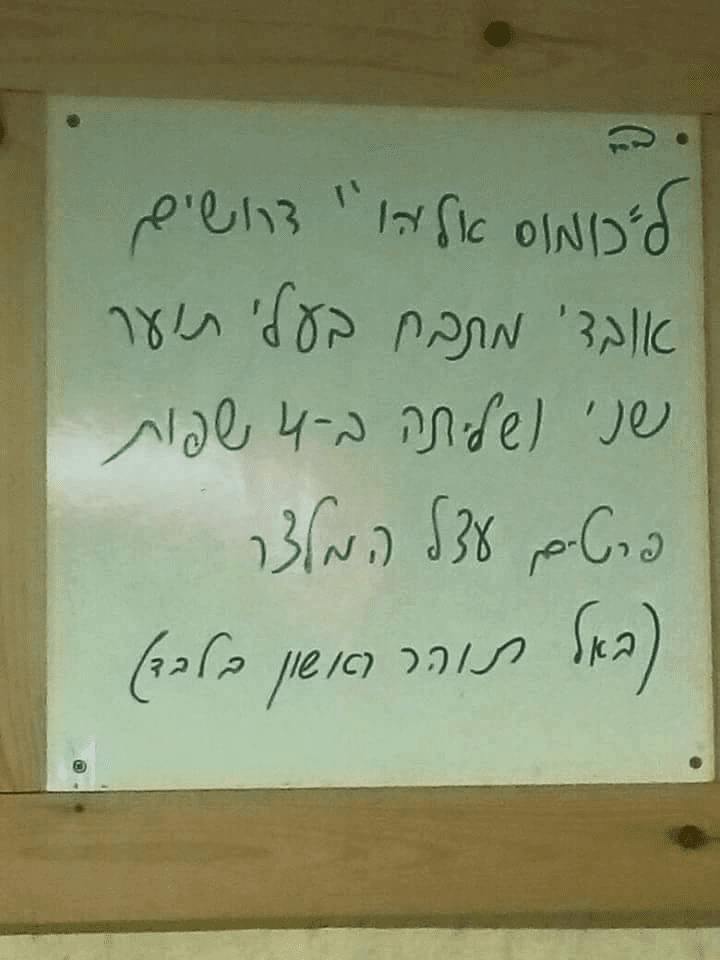 ל"כומוס אליהו" דרושים
אובדי מתבח בעלי תוער
שני ושליתה ב-4 שפות
פרטים עצל המלצר
(באל תוהר ראשון בלבד)